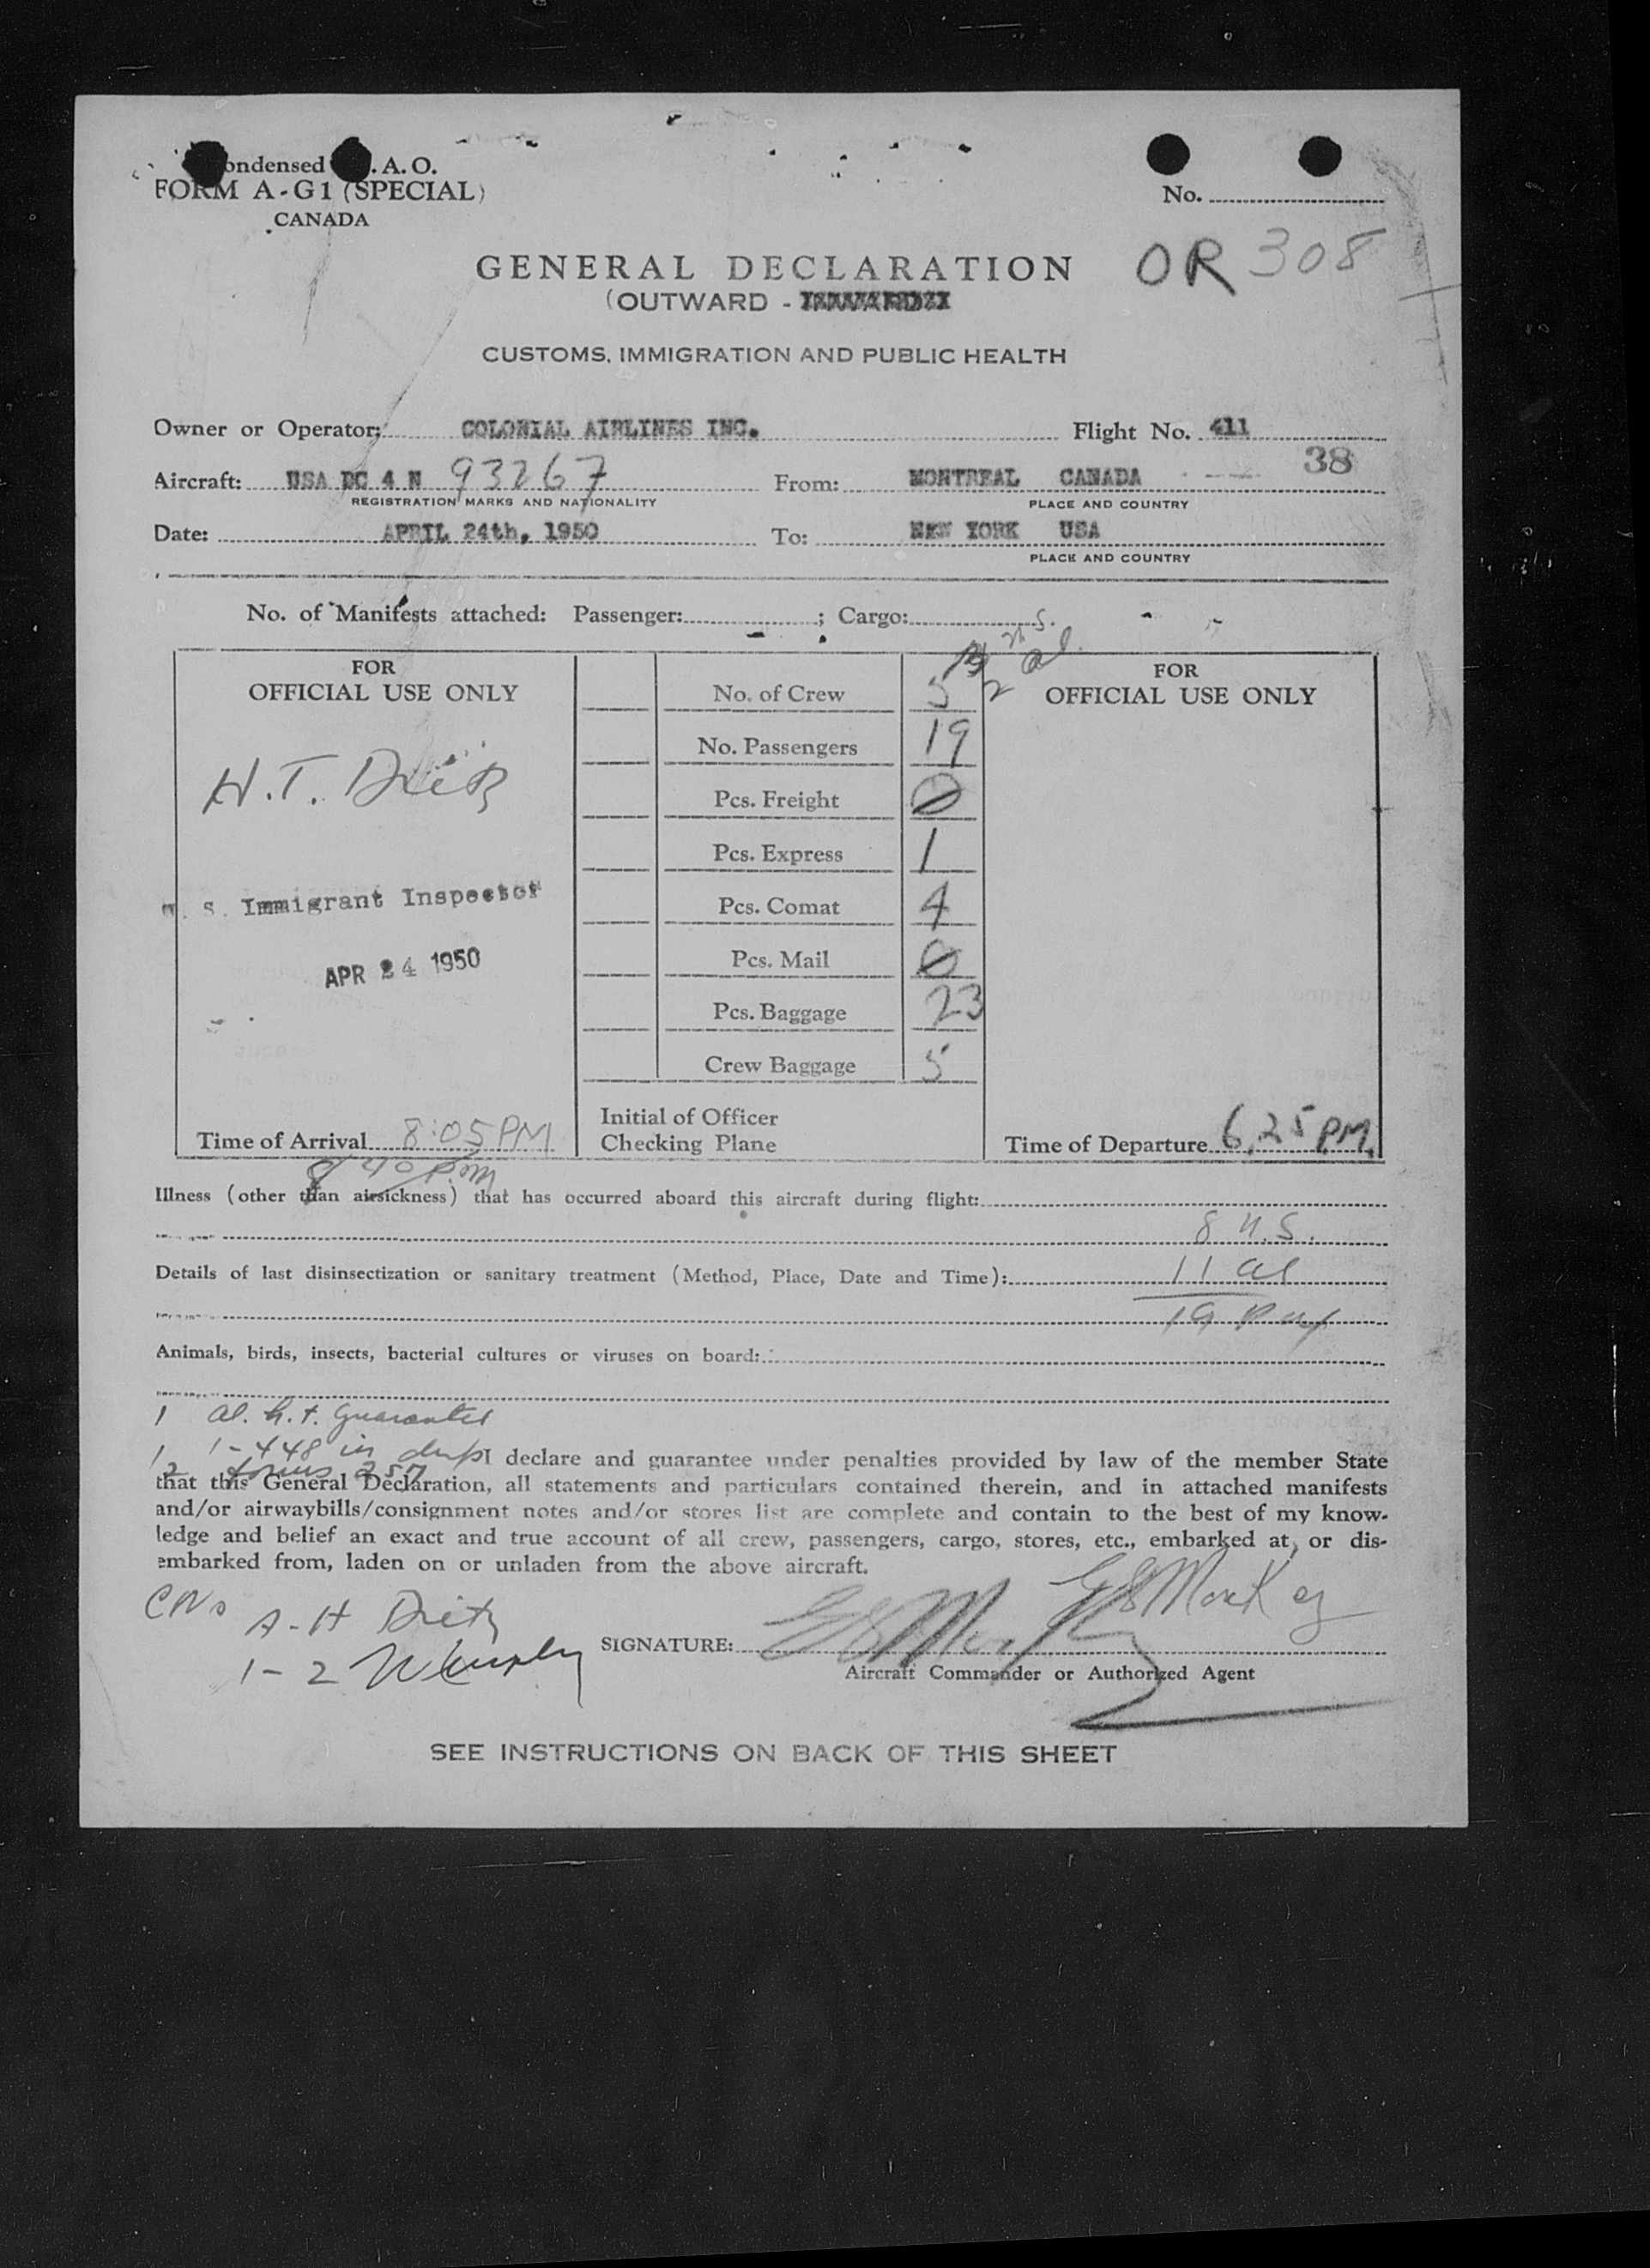 ondensed . A. O.
FORM A-G1 (SPECIAL)
CANADA
No.
OR 308
GENERAL DECLARATION
(OUTWARD -
CUSTOMS, IMMIGRATION AND PUBLIC HEALTH
Owner or Operator: COLONIAL AIRLINES INC. Flight No. 411
38
Aircraft: USA DC 4 N 93267 From: MONTREAL CANADA
REGISTRATION MARKS AND NATIONALITY PLACE AND COUNTRY
Date: APRIL 24th, 1950 To: NEW YORK USA
PLACE AND COUNTRY
No. of Manifests attached: Passenger: ; Cargo:
FOR
OFFICIAL USE ONLY
H.T. Dietz
U. S. Immigrant Inspector
APR 24 1950
Time of Arrival 8:05 PM
No. of Crew 5
2 al.
No. Passengers 19
Pcs. Freight 0
Pcs. Express 1
Pcs. Comat 4
Pcs. Mail 0
Pcs. Baggage 23
Crew Baggage 5
Initial of Officer
Checking Plane
FOR
OFFICIAL USE ONLY
Time of Departure 6.25 PM.
Illness (other than airsickness) that has occurred aboard this aircraft during flight:
8 U.S.
Details of last disinsectization or sanitary treatment (Method, Place, Date and Time): 11 al
19 pax
Animals, birds, insects, bacterial cultures or viruses on board:
1 al. h.t. guarantee
1 1-448 in dupl
2 forms 257
I declare and guarantee under penalties provided by law of the member State
that this General Declaration, all statements and particulars contained therein, and in attached manifests
and/or airwaybills/consignment notes and/or stores list are complete and contain to the best of my know-
ledge and belief an exact and true account of all crew, passengers, cargo, stores, etc., embarked at, or dis-
embarked from, laden on or unladen from the above aircraft.
A-H Dietz
1-2
SIGNATURE: G S MacKay
Aircraft Commander or Authorized Agent
SEE INSTRUCTIONS ON BACK OF THIS SHEET